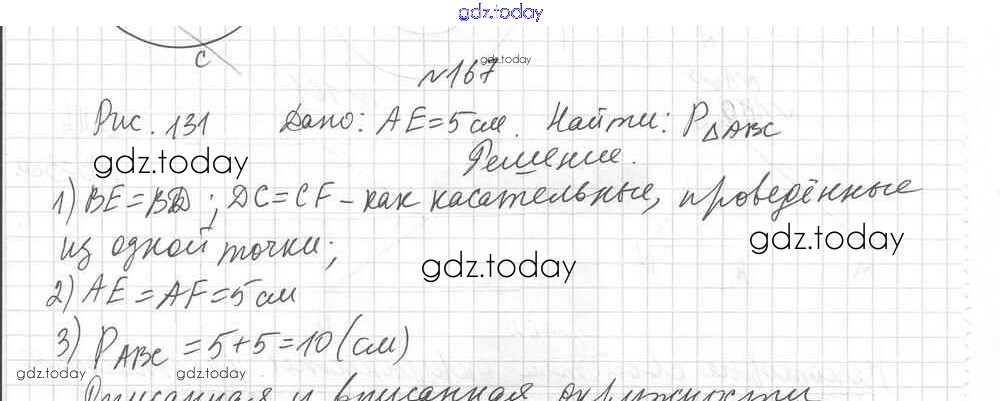 gdz.today
C
№167
gdz.today
Рис. 131 Дано: AE = 5 см. Найти: P△ABC
gdz.today
Решение.
1) BE = BD; DC = CF – как касательные, проведённые
gdz.today
из одной точки;
gdz.today
2) AE = AF = 5 см
3) PABC = 5 + 5 = 10 (см)
gdz.today
gdz.today
Описанная и вписанная окружности